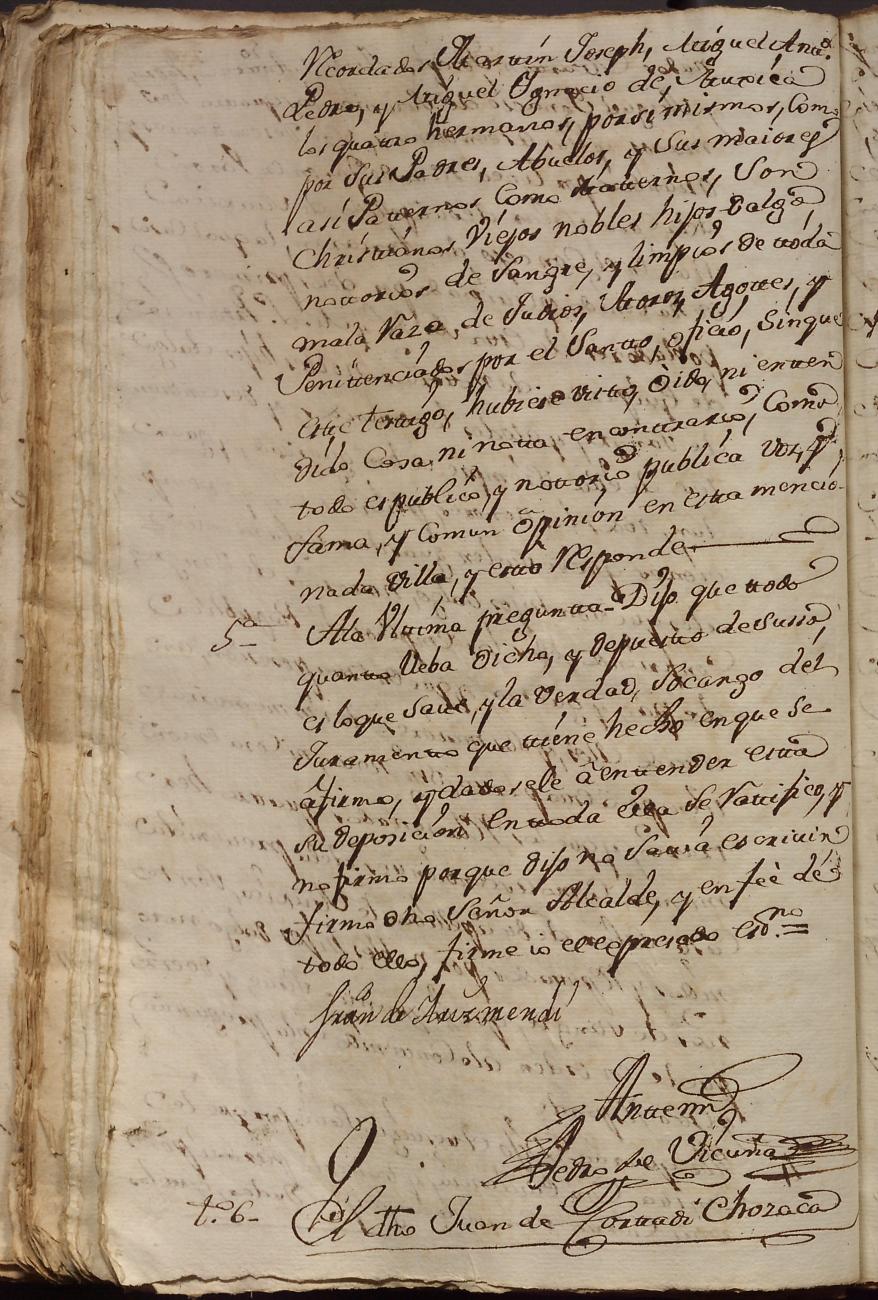 Recordados Martin Joseph, Miguel Antt.º
Pedro, y Miguel Ygnacio de Muxica
los quatro hermanos, por si mismos, como
por sus Padres, Abuelos, y sus maiores
asi Paternos como maternos, son
Christianos Viejos nobles hijos-dalgo
notorios de sangre, y limpios de toda
mala raza, de Judios, Moros, Agotes, y
Penitenciados por el Santo oficio, sin que
este testigo, hubiese visto, oido, ni enten
dido cosa, ni nota en contrario, como
todo es publico, y notorio publica voz, y
fama, y comun opinion en esta mencio-
nada villa, y esto responde
5.ª A la Ultima pregunta Dijo que todo
quanto lleba dicho, y depuesto de suso
es lo que save, y la verdad, so cargo del
Juramento que tiene hecho en que se
afirmo, y dadosele a entender esta
su deposicion en toda ella se ratifico, y
no firmo porque dijo no savia escrivir
firmo dho Señor Alcalde, y en feè de
todo ello, firme io el espresado esno.=
Fran.co de Arizmendi
Antemi
Pedro de Vicuña
t.º 6- El dho Juan de Chozaca